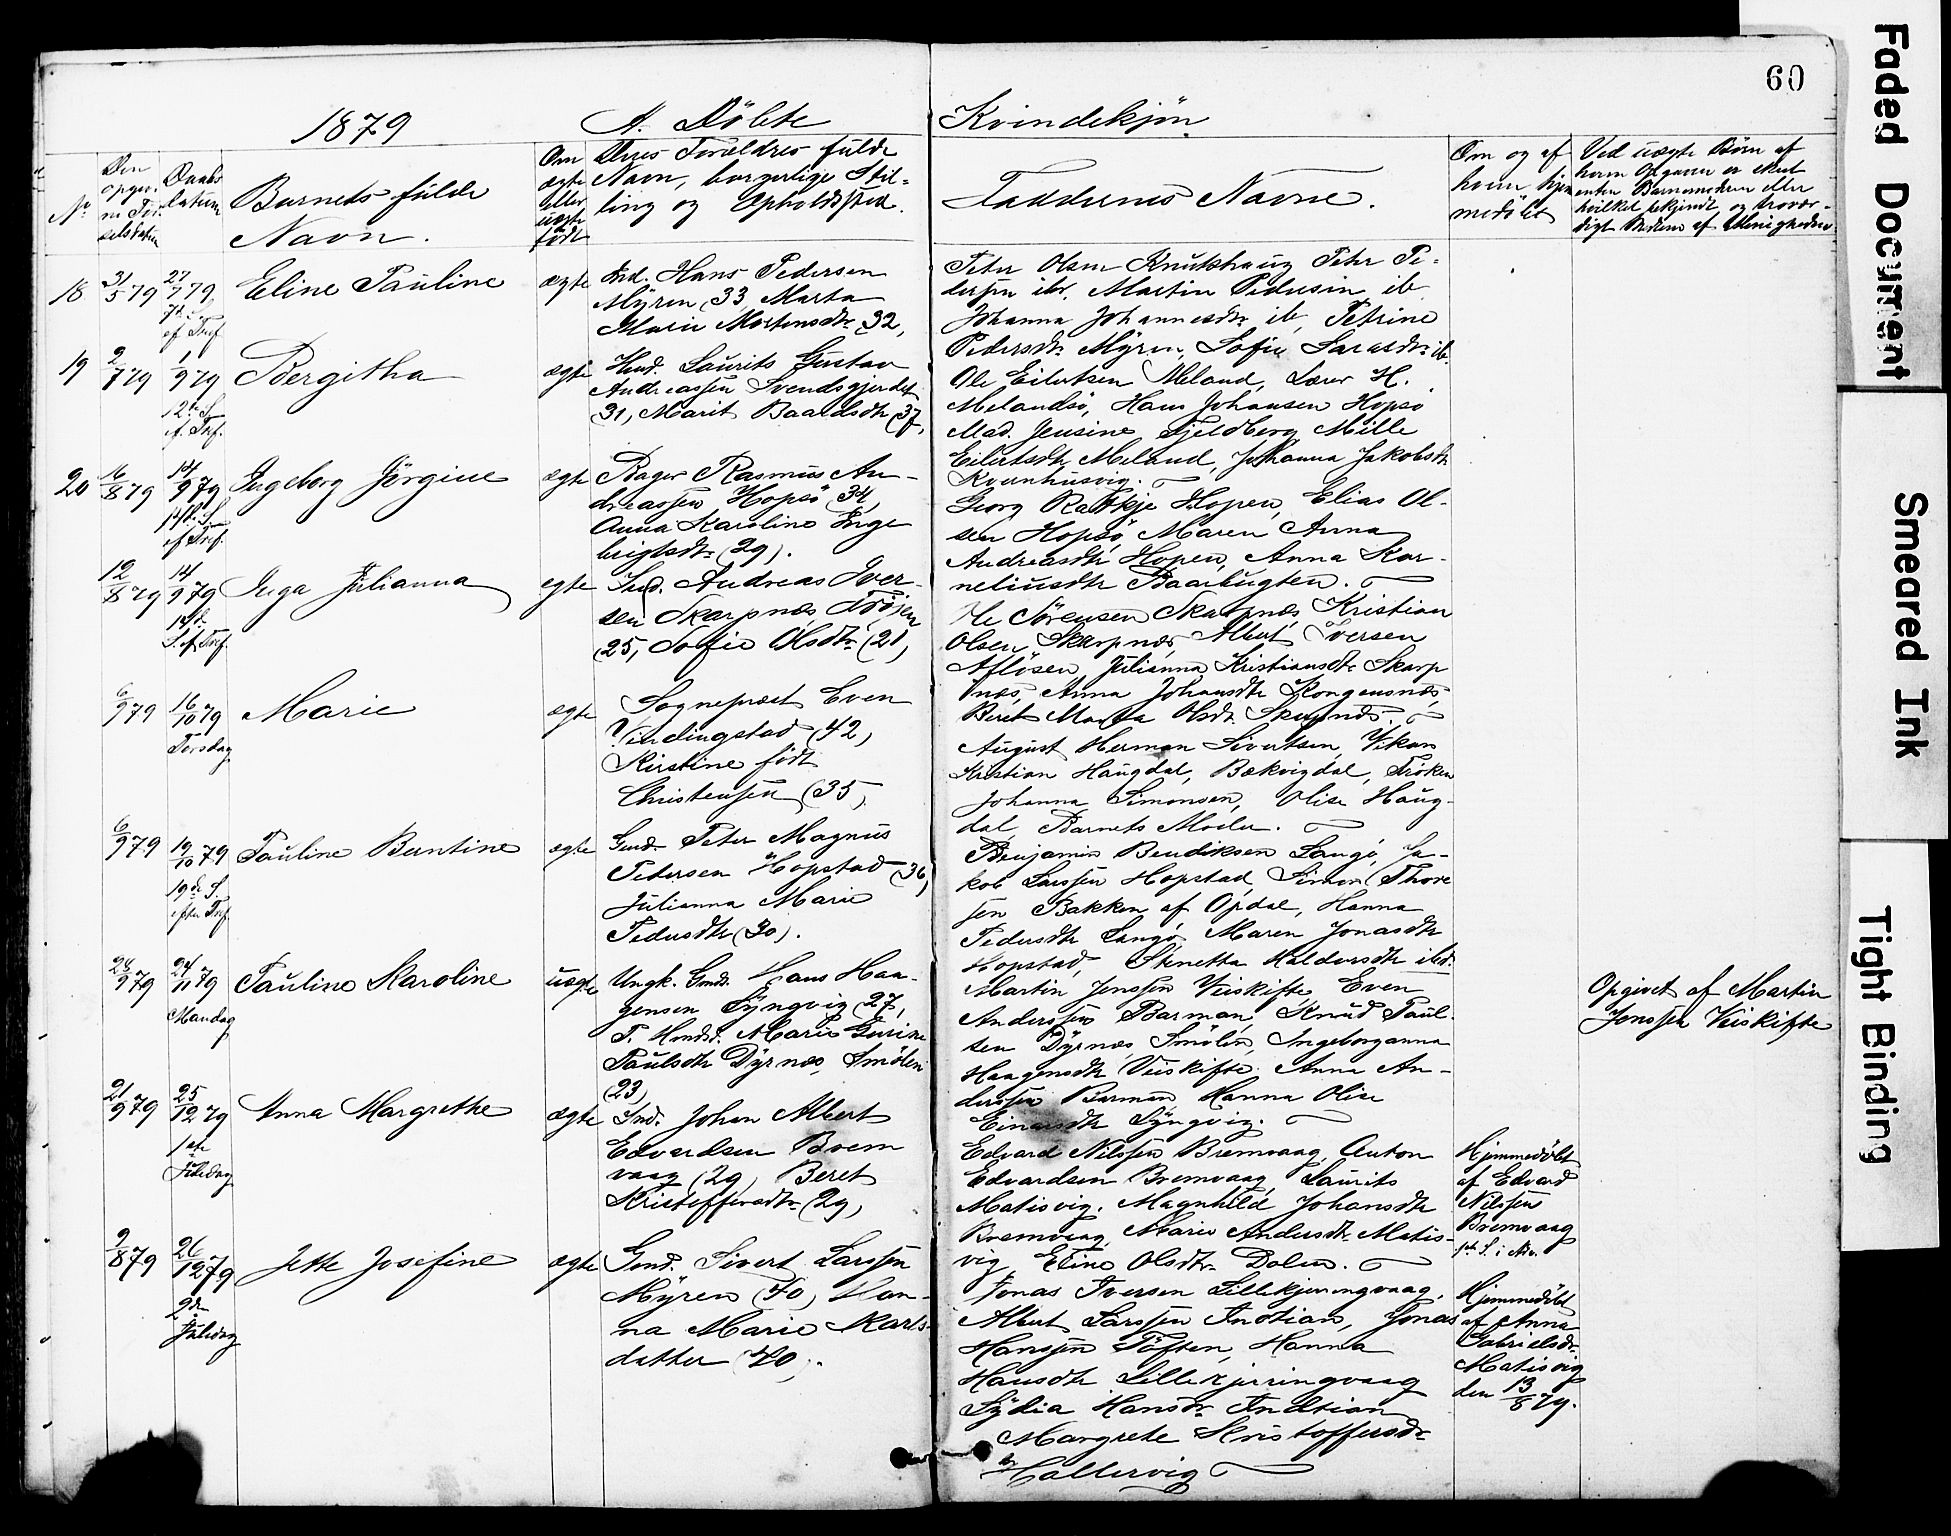 60
1879
A. Döbte
Kvindekjøn
No
Den opgivne Fødselsdatum
Daabsdatum
Barnets fulde
Navn.
Om
ægte
eller
uægte
født
Deres Forældres fulde
Navn, borgerlige Stil-
ling og Opholdssted.
Faddernes Navne.
Om og af
hvem hjem
medöbt
Ved uægte Börn af
hvem Opgaven er skeet
enten Barnemoderen eller
hvilket bekjendt og trovær-
digt Medlem af Menigheden
18
31/5 79
27/7 79
7de S.
ef. Tref.
Eline Pauline
ægte
Ind. Hans Pedersen
Myren (33, Marta
Marie Mortensdtr (32,
Peter Olsen Knutshaug Peter Pe-
dersen ib. Martin Pedersen ib.
Johanna Johannesdtr ib, Petrine
Pedersdtr Myren, Sofie Larsdtr ib.
19
2/7 79
1/9 79
12te S.
ef. Tref.
Bergitha
ægte
Hmd. Laurits Gustav
Andreassen Svendsgjerdet
(31, Marit Baardsdtr (37,
Ole Eilertsen Meland, Lærer H.
Melandsö, Hans Johansen Hopsö
Mad. Jensine Fjeldberg Mille
Eilertsdtr Meland, Johanna Jakobsdtr
Kvernhusvig.
20
16/8 79
14/9 79
14de S.
ef Tref.
Ingeborg Jörgine
ægte
Bager Rasmus An-
dreassen Hopsö (34,
Anna Karoline Inge
brigtsdtr (29).
Georg Rattkje Hopen, Elias Ol-
sen Hopsö Maren Anna
Andreasdtr Hopen, Anna Kor-
neliusdtr Baarbugten.
12/8 79
14/9 79
14de
S. ef. Tref.
Inga Julianna
egte
Ind. Andreas Iver-
sen Skarpnæs Fröjen
(25, Sofie Olsdtr (21,
Ole Sörensen Skarpnæs, Kristian
Olsen Skarpnæs, Albert Iversen
Aflösen, Julianna Kristiansdtr Skarp
næs, Anna Johansdtr Kongensnæs
Beret Marta Olsdtr Skarpnæs.
6/9 79
16/10 79
Torsdag
Marie
ægte
Sognepræst Even
Vindingstad (42,
Kirstine født
Christensen (35,
August Herman Sivertsen, Vikan
Kristian Haugdal, Bækvigdal, Fröken
Johanna Simonsen, Olise Haug-
dal, Barnets Moder.
6/9 79
19/10 79
19de S.
efter Tref.
Pauline Berntine
ægte
Gmd. Peter Magnus
Pedersen Hopstad (36,
Julianna Marie
Pedersdtr (30).
Benjamin Bendiksen Langö, Ja-
kob Larssen Hopstad, Simon Thore
sen Bakken af Opdal, Hanna
Pedersdtr Langö, Maren Jonasdtr
Hopstad, Haldorsdtr ibd.
24/11 79
Mandag
Pauline Karoline
uægte
Ungk. Gmds. Hans Haa-
gensen Lyngvig (27,
P. Hmdsd. Marie Gurine
Paulsdtr Dyrnæs, Smölen
(23)
Martin Jenssen Veiskifte, Even
Anderssen Barman, Knud Paul-
sen Dyrnæs Smölen, Ingeborganna
Haagensdtr Veiskifte. Anna An-
derssen Barman Hanna Olise
Einarsdtr Lyngvig.
Opgivet af Martin
Jenssen Veiskifte
21/9 79
25/12 79
1ste
Juledag
Anna Margrethe
ægte
Ind. Johan Albert
Edvardsen Brem
vaag (29, Beret
Kristoffersdtr (29,
Edvard Nilssen Bremvaag, Anton
Edvardsen Bremvaag Laurits
Matisvig. Magnhild Johansdtr
Bremvaag, Marie Andersdtr Matis-
vig, Eline Olsdtr Dolen.
Hjemmedöbt
af Edvard
Nilssen
Bremvaag
S. i Adv.
9/8 79
26/12 79
2den
Juledag
Jette Josefine
ægte
Gmd. Sivert Larssen
Myren (40, Han-
na Marie Karls-
datter (40).
Jonas Iversen Lillekjerringvaag,
Albert Larssen Indtian, Jonas
Hanssen Töften, Hanna
Hansdtr Lillekjerringvaag
Lydia Hansdtr Indtian
Margrete Kristoffersdtr
Hallervig
Hjemmedöbt
af Anna
Gabrielsdtr
Matisvig
den 13/8 79.
Faded Document
Smeared Ink
Tight Binding